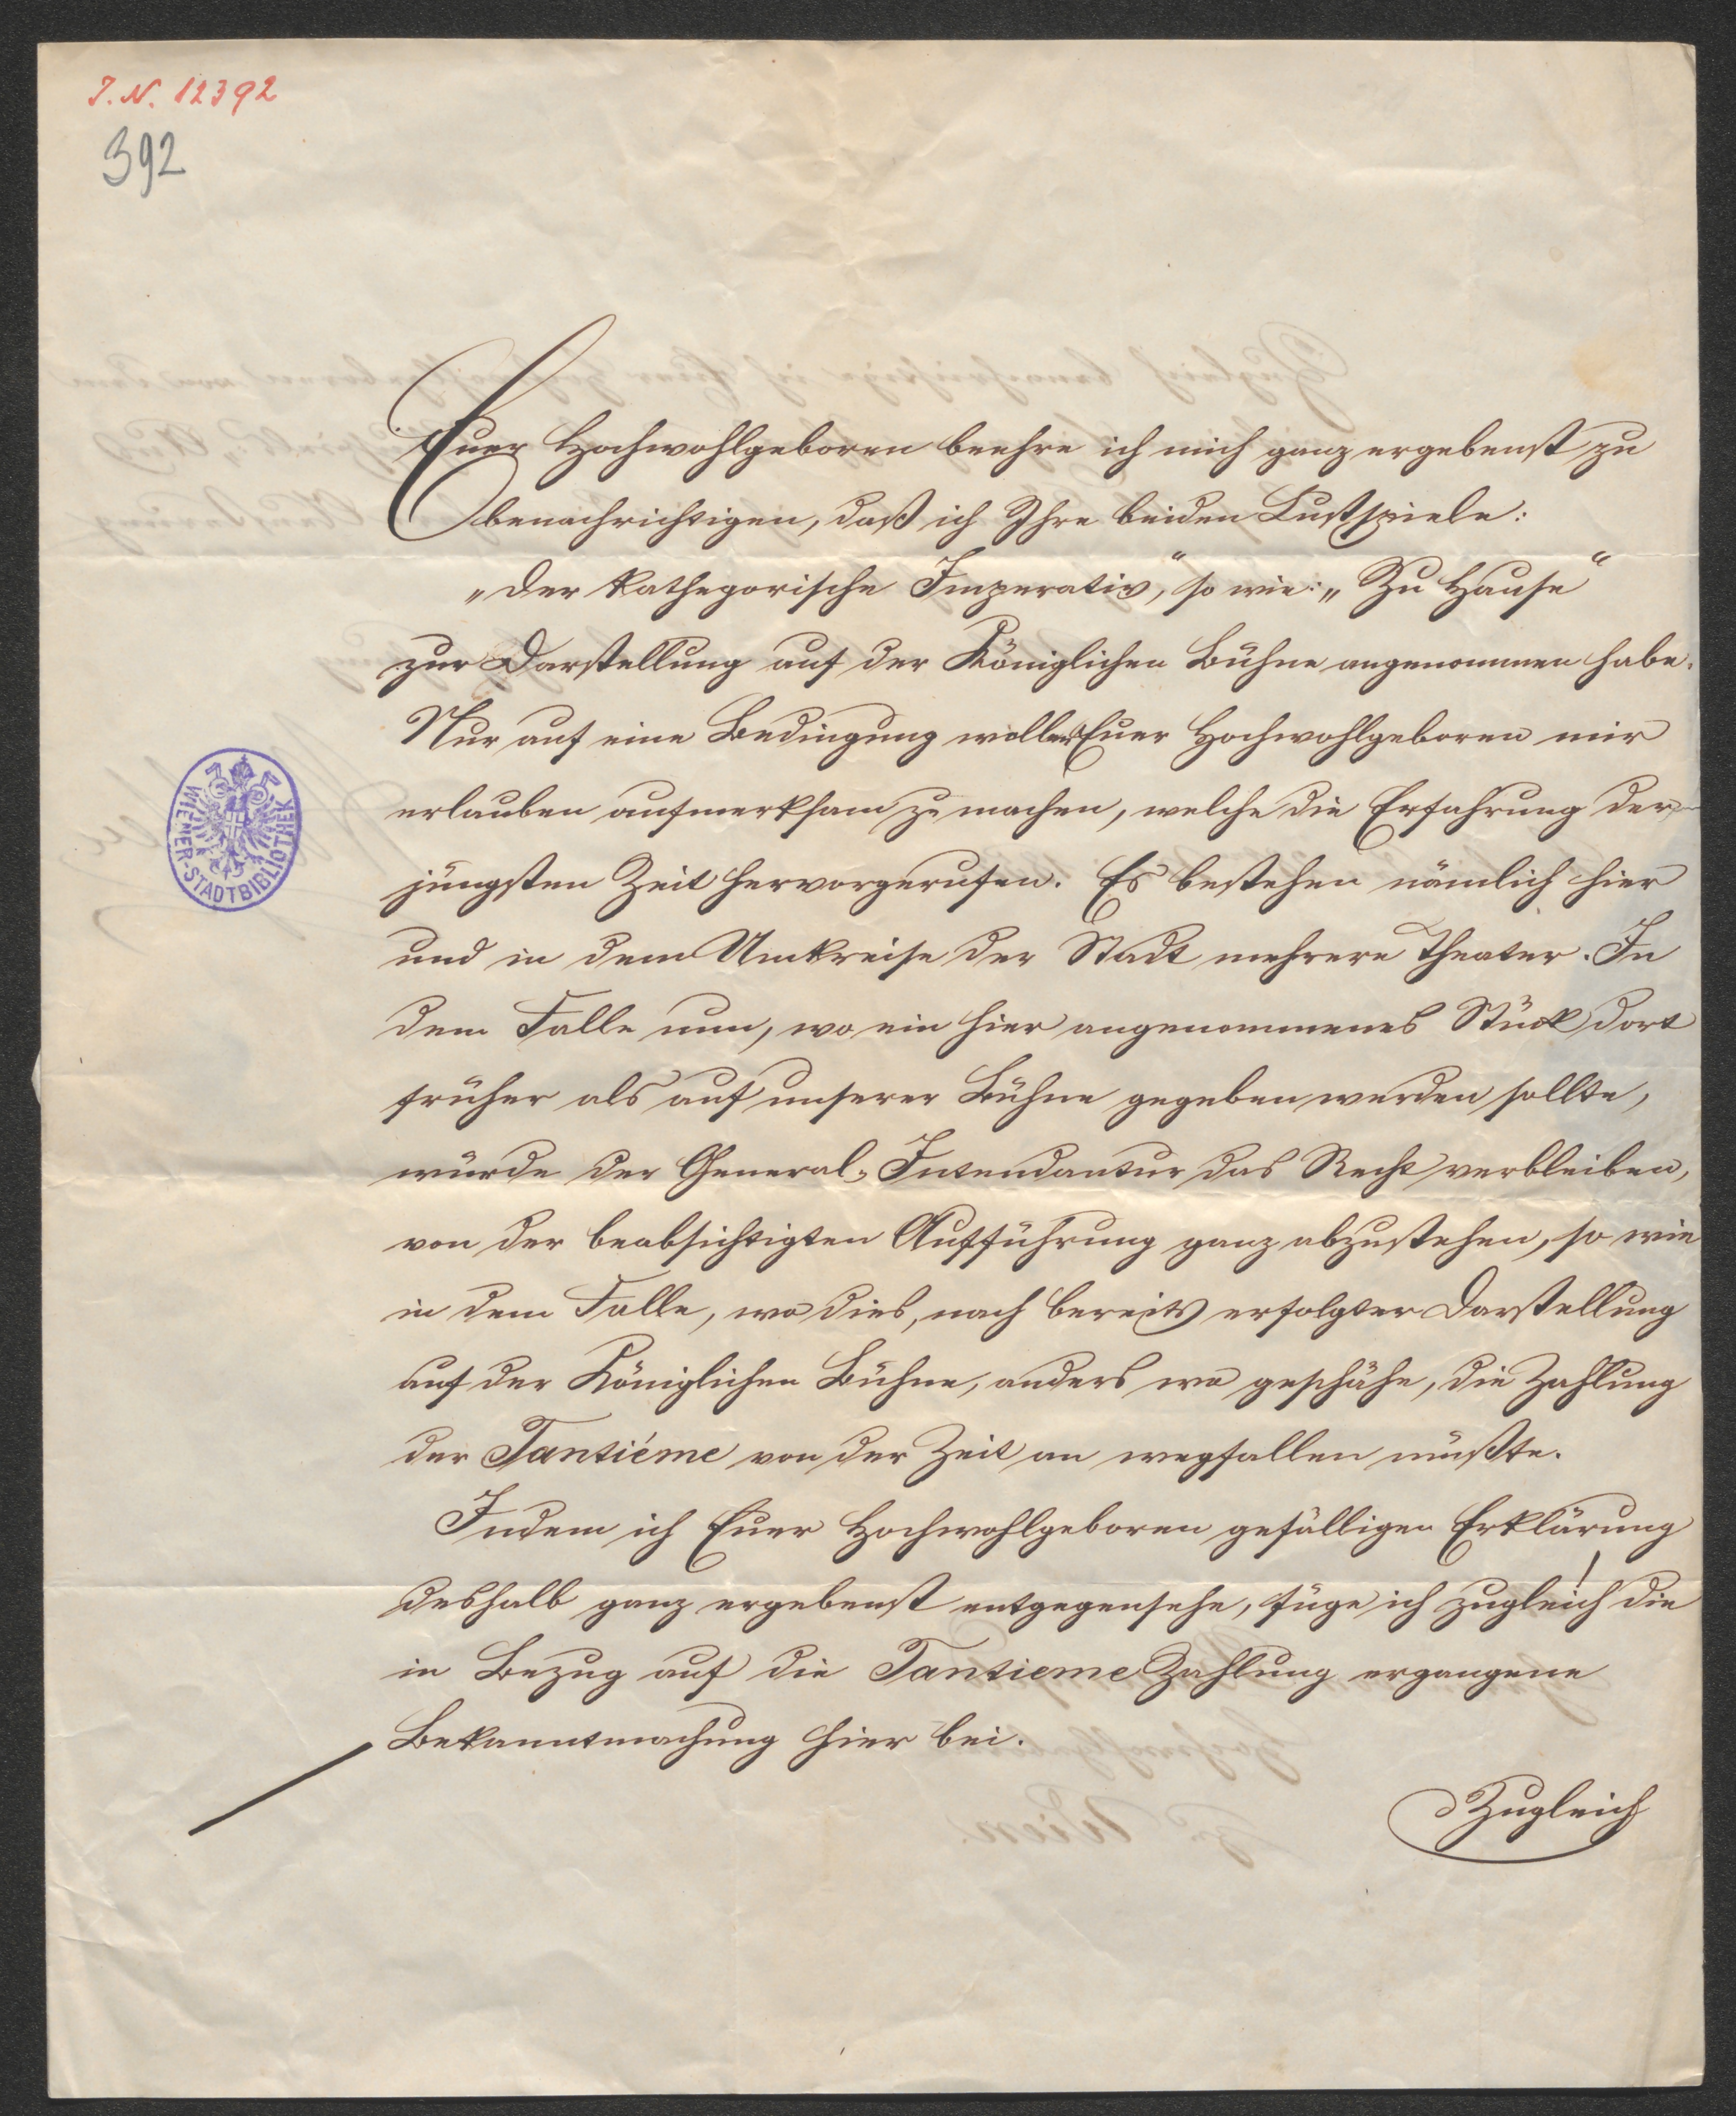 J. N. 12392
392
Euer Hochwohlgeboren beehre ich mich ganz ergebenst zu
benachrichtigen, daß ich Ihre beiden Lustspiele:
„der kathegorische Imperativ,“ so wie: „Zu Hause“
zur Darstellung auf der Königlichen Bühne angenommen habe.
Nur auf eine Bedingung wollen Euer Hochwohlgeboren mir
erlauben aufmerksam zu machen, welche die Erfahrung der
jüngsten Zeit hervorgerufen. Es bestehen nämlich hier
und in dem Umkreise der Stadt mehrere Theater. In
dem Falle nun, wo ein hier angenommenes Stück dort
früher als auf unserer Bühne gegeben werden sollte,
würde der General-Intendantur das Recht verbleiben,
von der beabsichtigten Aufführung ganz abzustehen, so wie
in dem Falle, wo dies, nach bereits erfolgter Darstellung
auf der Königlichen Bühne, anders wo geschähe, die Zahlung
der Tantiéme von der Zeit an wegfallen müßte.
Indem ich Euer Hochwohlgeboren gefälligen Erklärung
deshalb ganz ergebenst entgegensehe, füge ich zugleich die
in Bezug auf die Tantieme Zahlung ergangene
Bekanntmachung hier bei.
Zugleich
WIENER-STADTBIBLIOTHEK